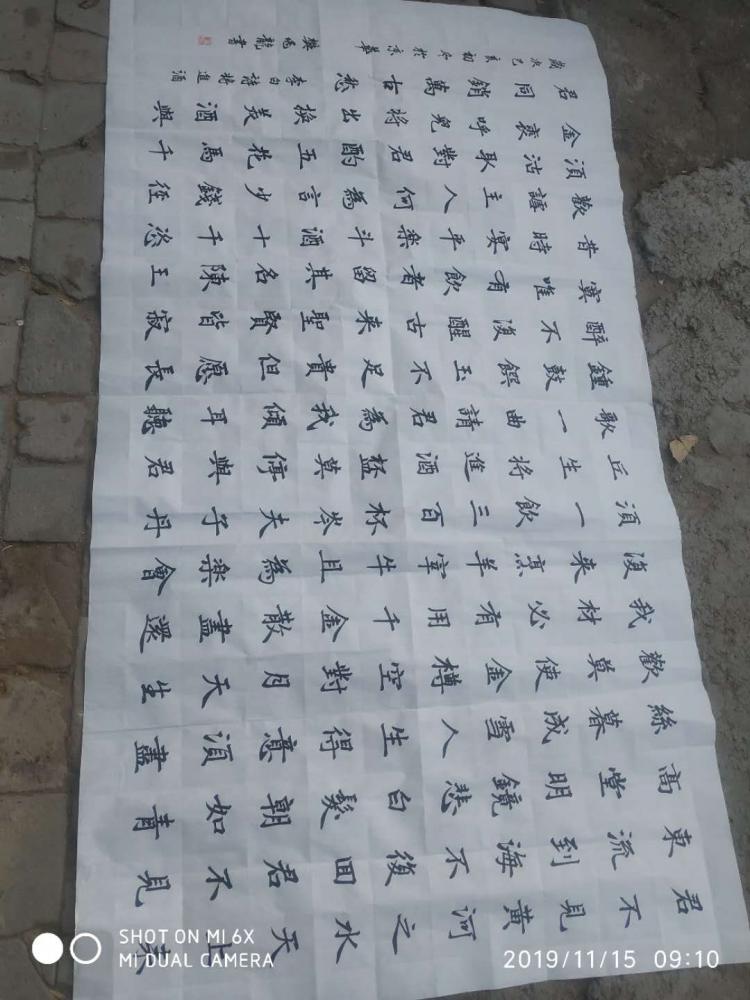 君不見黃河之水天上來
東流到海不復回君不見
高堂明鏡悲白髮朝如青
絲暮成雪人生得意須盡
歡莫使金樽空對月天生
我材必有用千金散盡還
復來烹羊宰牛且為樂會
須一飲三百杯岑夫子丹
丘生將進酒盃莫停與君
歌一曲請君為我傾耳聽
鍾鼓饌玉不足貴但愿長
醉不復醒古來聖賢皆寂
寞唯有飲者留其名陳王
昔時宴平樂斗酒十千恣
歡謔主人何為言少錢徑
須沽取對君酌五花馬千
金裘呼兒將出換美酒與
君同銷萬古愁 李白詩將進酒
歲次己亥初冬於京華 樊馬龍書
SHOT ON MI 6X
MI DUAL CAMERA
2019/11/15 09:10